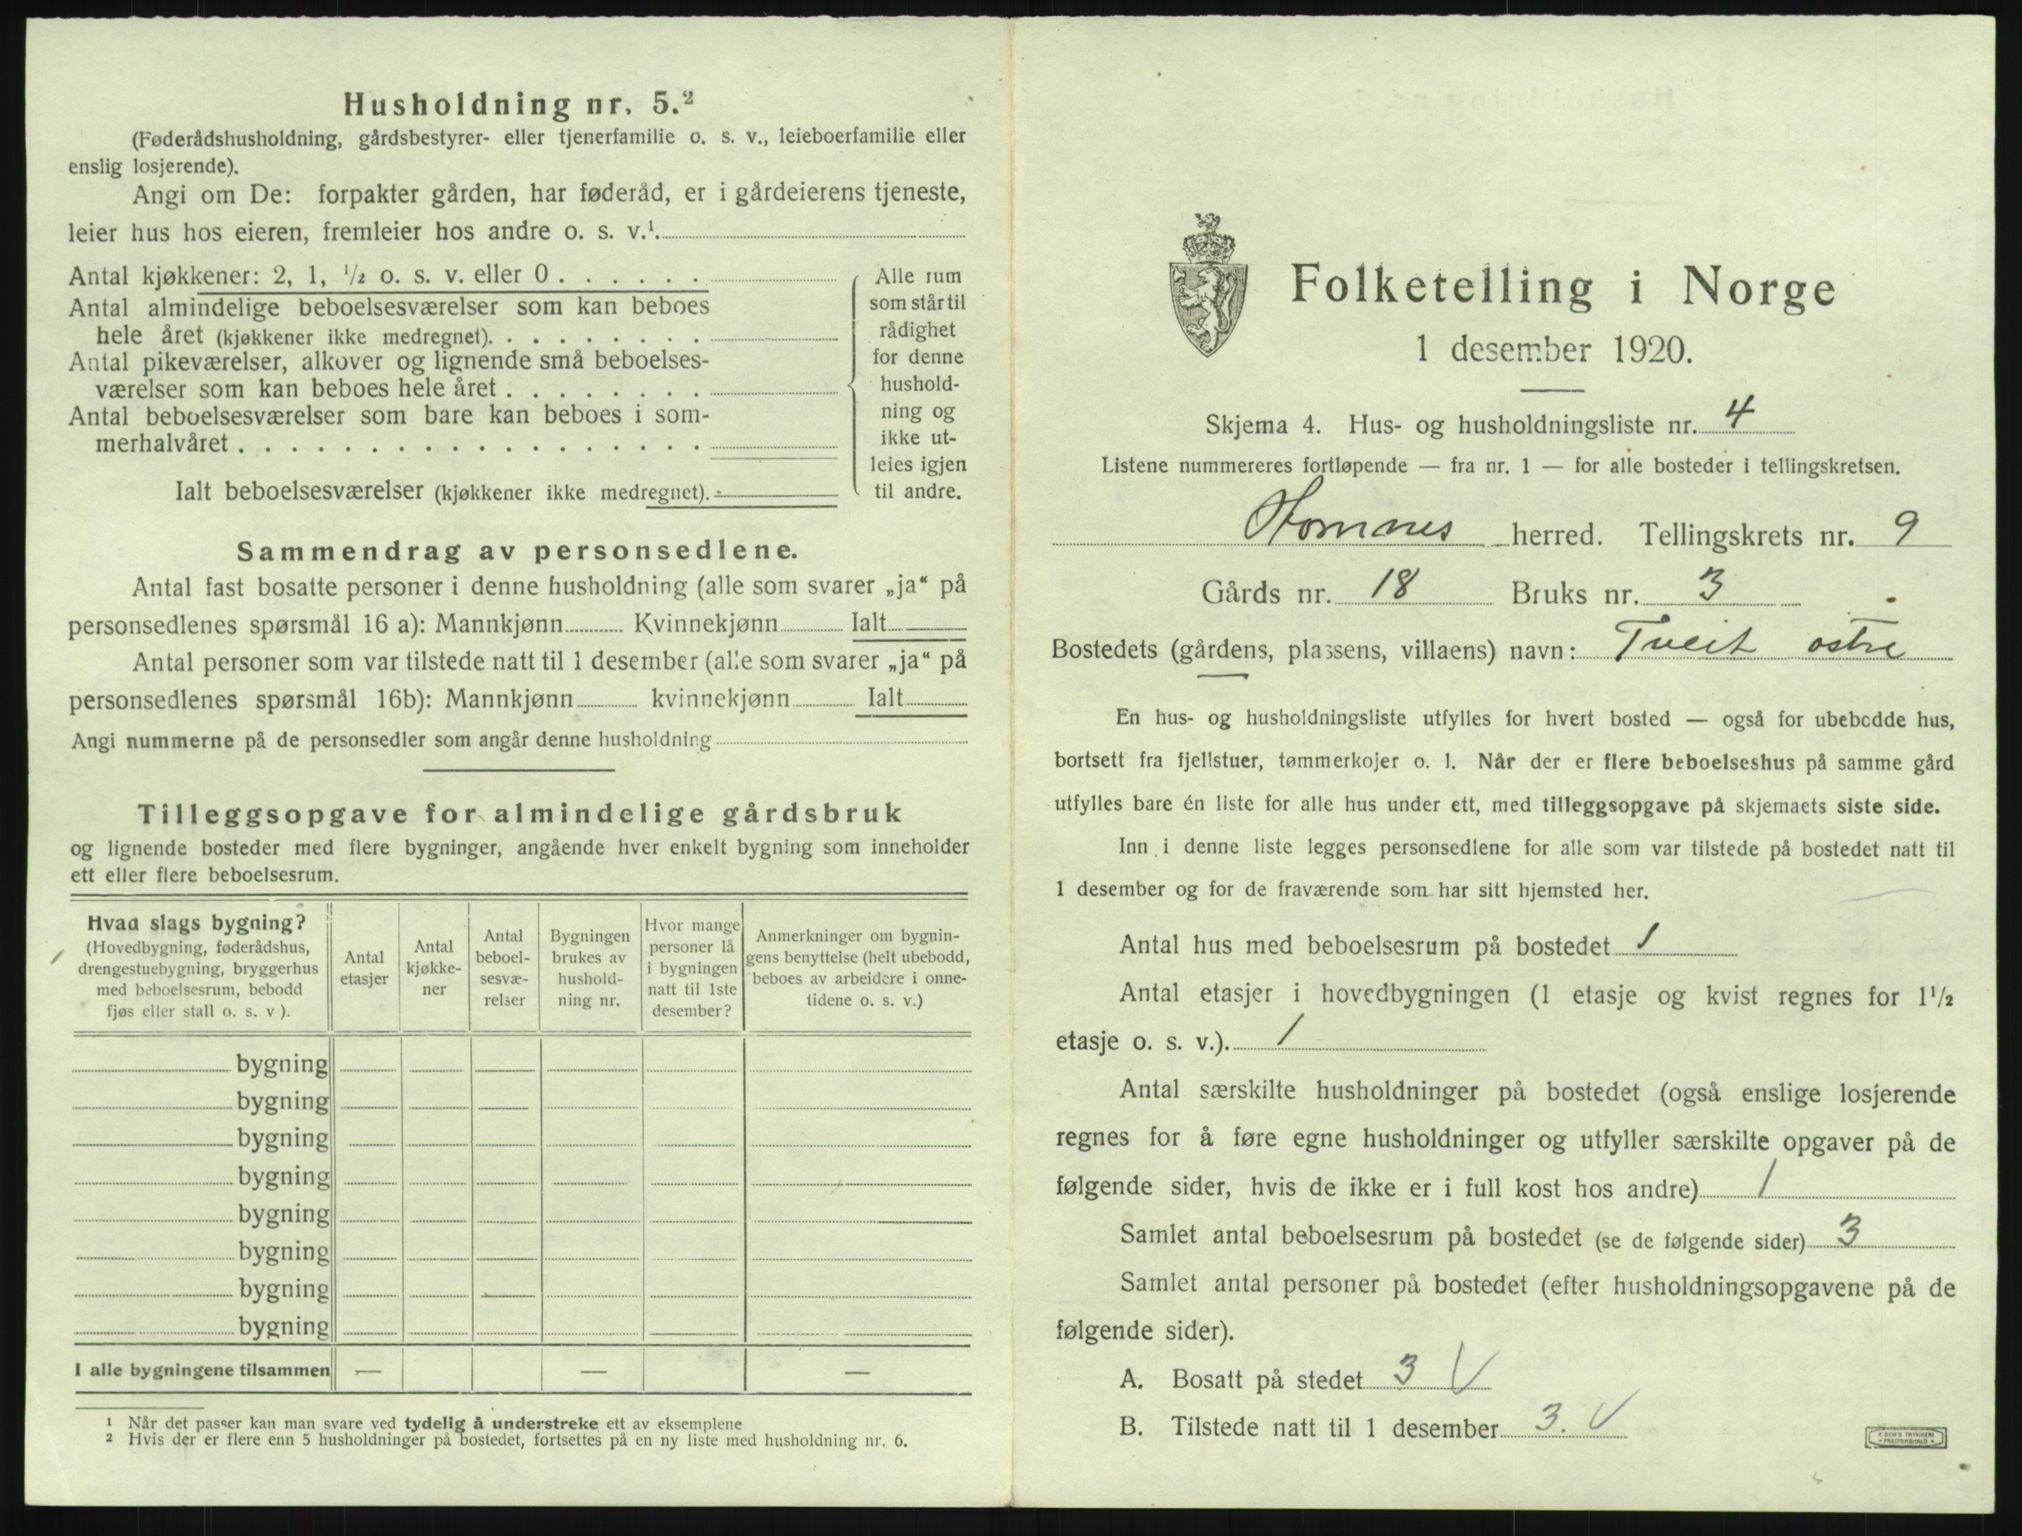 Husholdning nr. 5.²
(Føderådshusholdning, gårdsbestyrer- eller tjenerfamilie o. s. v., leieboerfamilie eller
enslig losjerende).
Angi om De: forpakter gården, har føderåd, er i gårdeierens tjeneste,
leier hus hos eieren, fremleier hos andre o. s. v.¹
Antal kjøkkener: 2, 1, ½ o. s. v. eller 0 . . . . . .
Antal almindelige beboelsesværelser som kan beboes
hele året (kjøkkener ikke medregnet). . . . . . . . .
Antal pikeværelser, alkover og lignende små beboelses-
værelser som kan beboes hele året . . . . . . . .
Antal beboelsesværelser som bare kan beboes i som-
merhalvåret . . . . . . . . . . . . . . . . . .
Ialt beboelsesværelser (kjøkkener ikke medregnet).
Alle rum
som står til
rådighet
for denne
hushold-
ning og
ikke ut-
leies igjen
til andre.
Sammendrag av personsedlene.
Antal fast bosatte personer i denne husholdning (alle som svarer „ja“ på
personsedlenes spørsmål 16 a): Mannkjønn Kvinnekjønn Ialt
Antal personer som var tilstede natt til 1 desember (alle som svarer „ja“ på
personsedlenes spørsmål 16b): Mannkjønn kvinnekjønn Ialt
Angi nummerne på de personsedler som angår denne husholdning
Tilleggsopgave for almindelige gårdsbruk
og lignende bosteder med flere bygninger, angående hver enkelt bygning som inneholder
ett eller flere beboelsesrum.
Hvad slags bygning?
(Hovedbygning, føderådshus,
drengestuebygning, bryggerhus
med beboelsesrum, bebodd
fjøs eller stall o. s. v ).
Antal
etasjer
Antal
kjøkke-
ner
Antal
beboel-
sesvæ-
relser
Bygningen
brukes av
hushold-
ning nr.
Hvor mange
personer lå
i bygningen
natt til 1ste
desember?
Anmerkninger om bygnin-
gens benyttelse (helt ubebodd,
beboes av arbeidere i onne-
tidene o. s. v.)
bygning
bygning
bygning
bygning
bygning
bygning
bygning
bygning
I alle bygningene tilsammen — — —
¹ Når det passer kan man svare ved tydelig å understreke ett av eksemplene
² Hvis der er flere enn 5 husholdninger på bostedet, fortsettes på en ny liste med husholdning nr. 6.
Folketelling i Norge
1 desember 1920.
Skjema 4. Hus- og husholdningsliste nr. 4
Listene nummereres fortløpende — fra nr. 1 — for alle bosteder i tellingskretsen.
Hornnes herred. Tellingskrets nr. 9
Gårds nr. 18 Bruks nr. 3
Bostedets (gårdens, plassens, villaens) navn: Tveit østre
En hus- og husholdningsliste utfylles for hvert bosted — også for ubebodde hus,
bortsett fra fjellstuer, tømmerkojer o. l. Når der er flere beboelseshus på samme gård
utfylles bare én liste for alle hus under ett, med tilleggsopgave på skjemaets siste side.
Inn i denne liste legges personsedlene for alle som var tilstede på bostedet natt til
1 desember og for de fraværende som har sitt hjemsted her.
Antal hus med beboelsesrum på bostedet 1
Antal etasjer i hovedbygningen (1 etasje og kvist regnes for 1½
etasje o. s. v.). 1
Antal særskilte husholdninger på bostedet (også enslige losjerende
regnes for å føre egne husholdninger og utfyller særskilte opgaver på de
følgende sider, hvis de ikke er i full kost hos andre) 1
Samlet antal beboelsesrum på bostedet (se de følgende sider) 3
Samlet antal personer på bostedet (efter husholdningsopgavene på de
følgende sider).
A. Bosatt på stedet 3 V
B. Tilstede natt til 1 desember 3. V